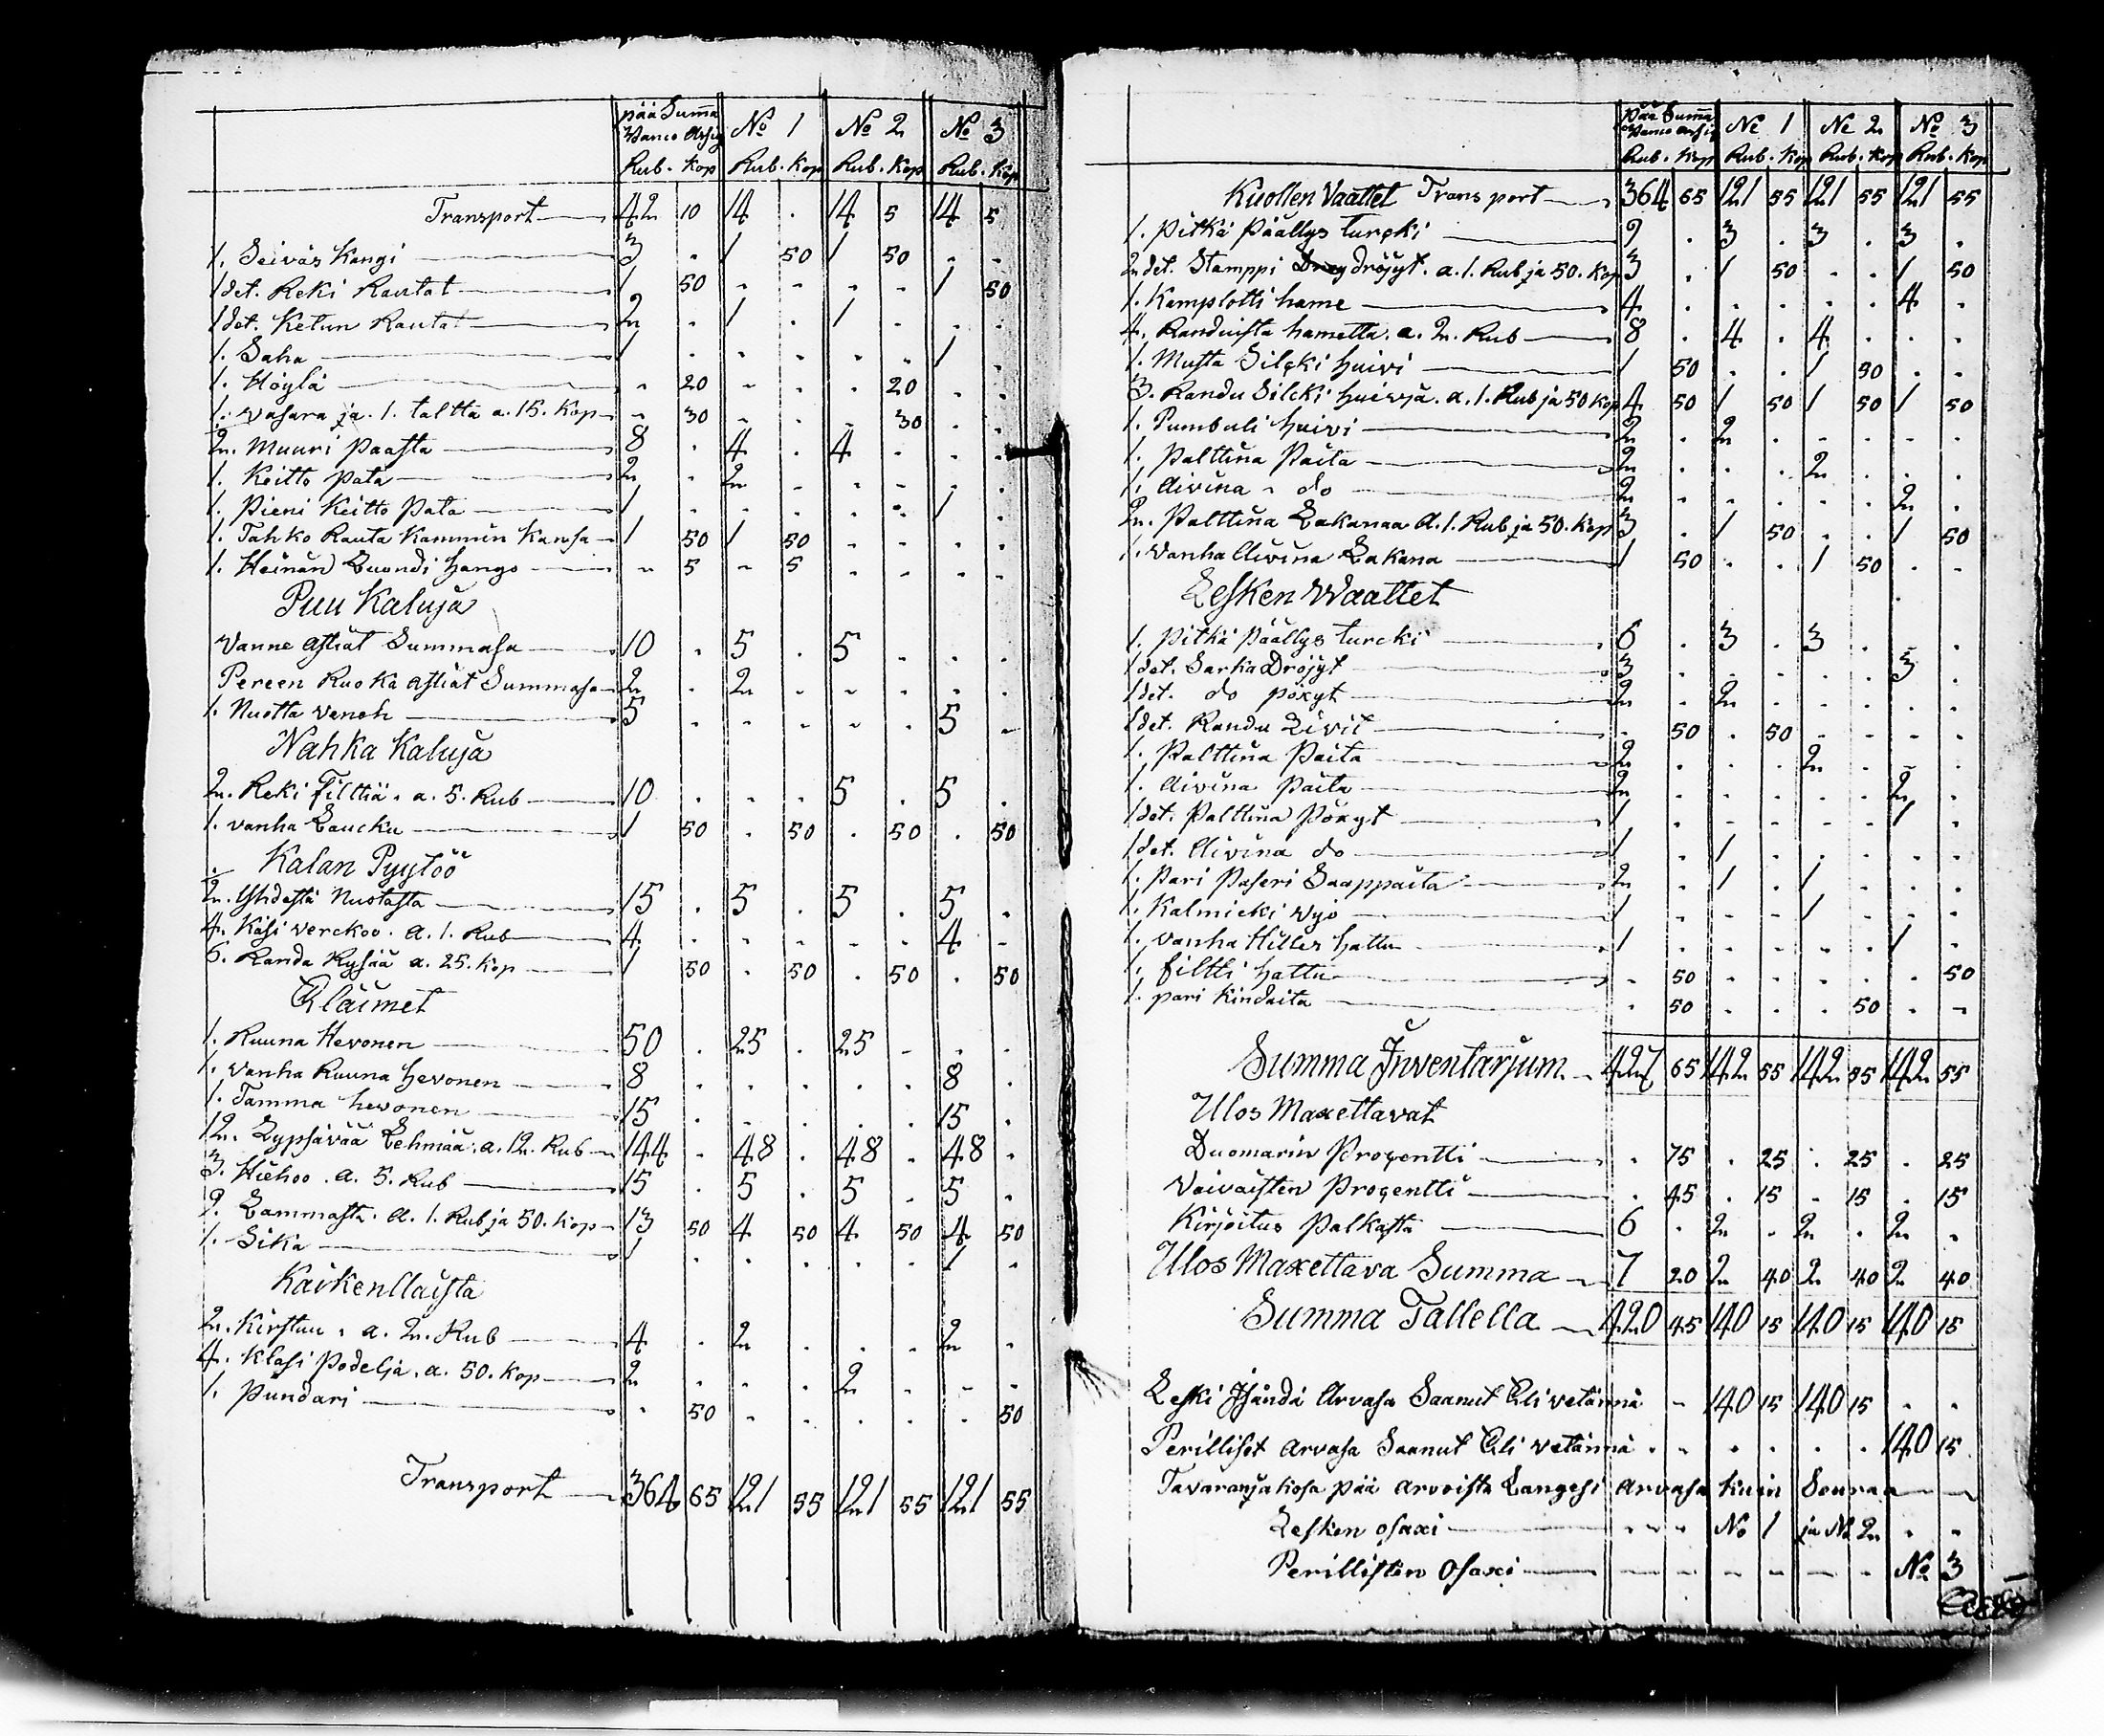 pää Sum̄a № 1 № 2 № 3
Banco Assig
Rub. kop Rub. Kop Rub. Kop Rub. Kop
Transport 42 10 14 . 14 5 14 5
1. Seiväs Kangi 3 . 1 50 1 50 . .
1 det. Reki Rautat 1 50 . . . . 1 50
1 det. Ketun Rautat 2 . 1 . 1 . . .
1. Saha 1 . . . . . 1 .
1. Höylä . 20 . . . 20 . .
1. Vasara ja. 1. taltta a. 15. Kop . 30 . . . 30 . .
2. Muuri Paasta 8 . 4 . 4 . . .
1. Keitto pata 2 . 2 . . . . .
1. Pieni Keitto Pata 1 . . . . . 1 .
1. Tahko Rauta Kammin Kansa 1 50 1 50 . . . .
1. Heinän Luondi hango . 5 . 5 . . . .
Puu Kaluja
Vanne Astiat Summasa 10 . 5 . 5 . . .
Pereen Ruoka astiat Summasa 2 . 2 . . . . .
1. Nuotta Veneh 5 . . . . . 5 .
Nahka Kaluja
2. Reki Filttiä. a. 5. Rub 10 . . . 5 . 5 .
1. vanha Laucku 1 50 . 50 . 50 . 50
Kalan Pyytöö
2. Yhdestä Nuotasta 15 . 5 . 5 . 5 .
4. Käsi verckoo. a. 1. Rub 4 . . . . . 4 .
6. Randa Rysää a. 25. kop 1 50 . 50 . 50 . 50
Eläimet
1. Ruuna Hevonen 50 . 25 . 25 . . .
1. Vanha Ruuna hevonen 8 . . . . . 8 .
1. Tamma hevonen 15 . . . . . 15 .
12. Lypsävää Lehmää. a. 12. Rub 144 . 48 . 48 . 48 .
3. Hiehoo. a. 5. Rub 15 . 5 . 5 . 5 .
9. Lammasta. a. 1. Rub ja 50. kop 13 50 4 50 4 50 4 50
1. Sika 1 . . . . . 1 .
Kaikenllaista
2. Kirstuu. a. 2. Rub 4 . 2 . . . 2 .
4. Klasi Podelja. a. 50. kop 2 . . . 2 . . .
1. Pundari . 50 . . . . . 50
Transport 364 65 121 55 121 55 121 55
Pää Sum̄a № 1 № 2 № 3
Banco Assig
Rub. Kop Rub. Kop Rub. Kop Rub. Kop
Kuollen Vaattet Transport 364 65 121 55 121 55 121 55
1. Pitkä Päällys turcki 9 . 3 . 3 . 3 .
2 det. Stamppi Dröjyt. a. 1. Rub ja 50. Kop 3 . 1 50 . . 1 50
1. Kamplotti hame 4 . . . . . 4 .
4. Randuista hametta. a. 2. Rub 8 . 4 . 4 . . .
1. Musta Silcki huivi 1 50 . . 1 50 . .
3. Randu Silcki huivja. a. 1. Rub ja 50 Kop 4 50 1 50 1 50 1 50
1. Pumbuli huivi 2 . 2 . . . . .
1. Palttina Paita 2 . . . 2 . . .
1. Aivina - do 2 . . . . . 2 .
2. Palttina Lakanaa a. 1. Rub ja 50. Kop 3 . 1 50 . . 1 50
1. Vanha Aivina Lakana 1 50 . . 1 50 . .
Lesken Waattet
1. Pitkä Päällys turcki 6 . 3 . 3 . . .
1 det. Sarka Dröjyt 3 . . . . . 3 .
1 det. do pöxyt 2 . 2 . . . . .
1 det. Randu Livit . 50 . 50 . . . .
1. Palttina Paita 2 . . . 2 . . .
1. Aivina Paita 2 . . . . . 2 .
1 det. Palttina Pöxyt 1 . . . . . 1 .
1 det. Aivina do 1 . 1 . . . . .
1. Pari Paseri Saappaita 2 . 1 . 1 . . .
1. Kalmicki Vyö 1 . . . 1 . . .
1. Vanha Hiller hattu 1 . . . . . 1 .
1. filtti hattu . 50 . . . . . 50
1. pari kindaita . 50 . . . 50 . .
Summa Inventarjum. 427 65 142 55 142 55 142 55
Ulos Maxettavat
Duomarin Procentti . 75 . 25 . 25 . 25
Vaivaisten Procentti . 45 . 15 . 15 . 15
Kirjoitus Palkasta 6 . 2 . 2 . 2 .
Ulos Maxettava Summa 7 20 2 40 2 40 2 40
Summa Tallella 420 45 140 15 140 15 140 15
Leski Isändä Arvasa Saanut Eli vetännä . 140 15 140 15 . .
Perilliset arvasa Saanut Eli vetännä . . . . . . 140 15
Tavaranjakosa pää arvoista Langesi arvasa kuin Seuraa
Lesken osaxi . . . № 1 ja № 2 . .
Perillisten Osaxi № 3